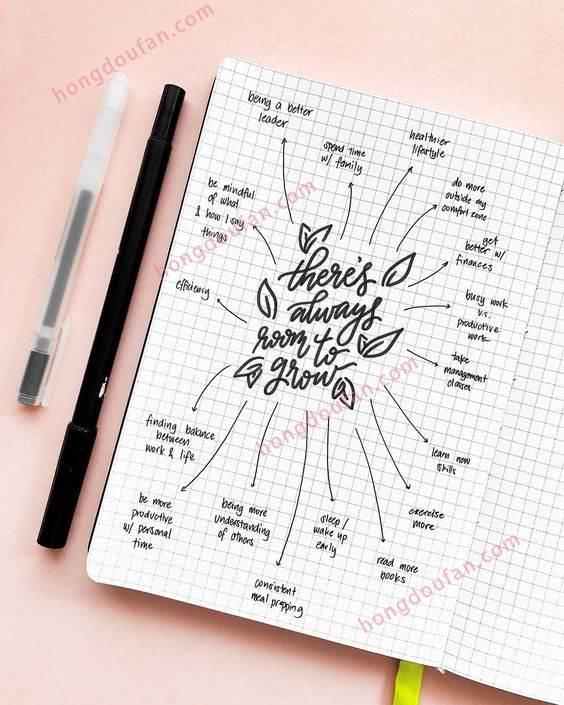 hongdoufan.com
being a better
leader
spend time
w/ family
healthier
lifestyle
do more
outside my
comfort zone
be mindful
of what
& how I say
things
get
better w/
finances
hongdoufan.com
efficiency
there's
always
room to
grow
busy work
v.s.
productive
work
take
management
classes
hongdoufan.com
finding balance
between
work & life
learn new
skills
be more
productive
w/ personal
time
being more
understanding
of others
sleep/
wake up
early
exercise
more
read more
books
consistent
meal prepping
hongdoufan.com